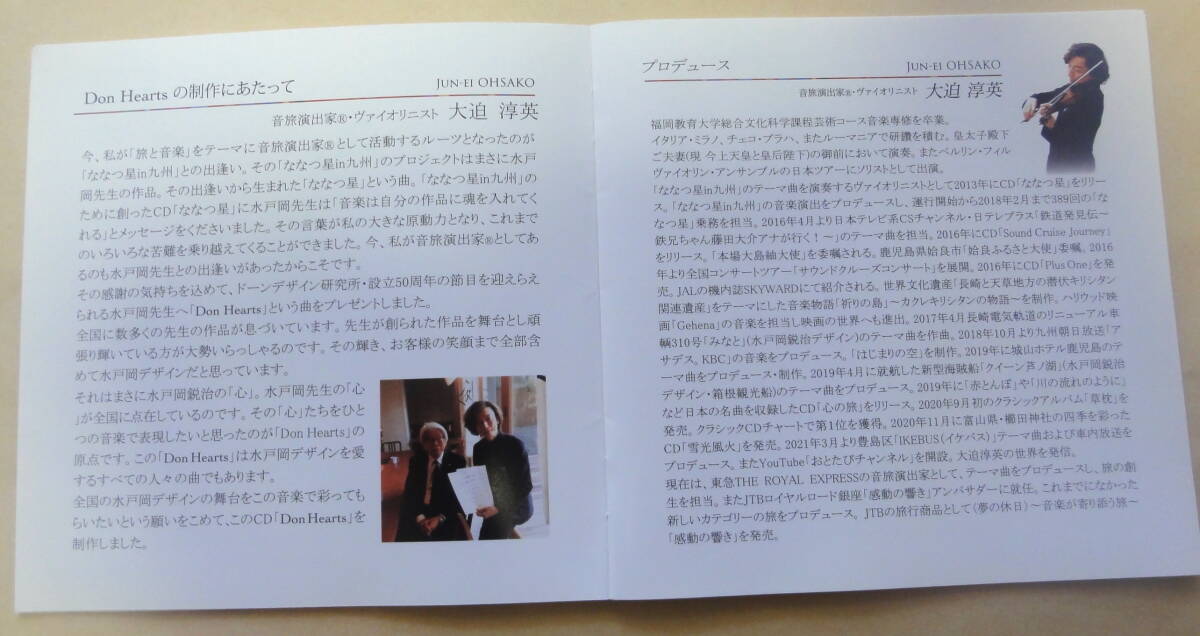 Don Hearts の制作にあたって
JUN-EI OHSAKO
音旅演出家®・ヴァイオリニスト 大迫 淳英
今、私が「旅と音楽」をテーマに音旅演出家®として活動するルーツとなったのが
「ななつ星in九州」との出逢い。その「ななつ星in九州」のプロジェクトはまさに水戸
岡先生の作品。その出逢いから生まれた「ななつ星」という曲。「ななつ星in九州」の
ために創ったCD「ななつ星」に水戸岡先生は「音楽は自分の作品に魂を入れてく
れる」とメッセージをくださいました。その言葉が私の大きな原動力となり、これまで
のいろいろな苦難を乗り越えてくることができました。今、私が音旅演出家®としてあ
るのも水戸岡先生との出逢いがあったからこそです。
その感謝の気持ちを込めて、ドーンデザイン研究所・設立50周年の節目を迎えらえ
られる水戸岡先生へ「Don Hearts」という曲をプレゼントしました。
全国に数多くの先生の作品が息づいています。先生が創られた作品を舞台とし頑
張り輝いている方が大勢いらっしゃるのです。その輝き、お客様の笑顔まで全部含
めて水戸岡デザインだと思っています。
それはまさに水戸岡鋭治の「心」。水戸岡先生の「心
」が全国に点在しているのです。その「心」たちをひと
つの音楽で表現したいと思ったのが「Don Hearts」の
原点です。この「Don Hearts」は水戸岡デザインを愛
するすべての人々の曲でもあります。
全国の水戸岡デザインの舞台をこの音楽で彩っても
らいたいという願いをこめて、このCD「Don Hearts」を
制作しました。
プロデュース
JUN-EI OHSAKO
音旅演出家®・ヴァイオリニスト 大迫 淳英
福岡教育大学総合文化科学課程芸術コース音楽専修を卒業。
イタリア・ミラノ、チェコ・プラハ、またルーマニアで研鑽を積む。皇太子殿下
ご夫妻(現 今上天皇と皇后陛下)の御前において演奏。またベルリン・フィル
ヴァイオリン・アンサンブルの日本ツアーにソリストとして出演。
「ななつ星in九州」のテーマ曲を演奏するヴァイオリニストとして2013年にCD「ななつ星」をリリー
ス。「ななつ星in九州」の音楽演出をプロデュースし、運行開始から2018年2月まで389回の「な
なつ星」乗務を担当。2016年4月より日本テレビ系CSチャンネル・日テレプラス「鉄道発見伝～
鉄兄ちゃん藤田大介アナが行く!～」のテーマ曲を担当。2016年にCD「Sound Cruise Journey」
をリリース。「本場大島紬大使」を委嘱される。鹿児島県姶良市「姶良ふるさと大使」委嘱。2016
年より全国コンサートツアー「サウンドクルーズコンサート」を展開。2016年にCD「Plus One」を発
売。JALの機内誌SKYWARDにて紹介される。世界文化遺産「長崎と天草地方の潜伏キリシタン
関連遺産」をテーマにした音楽物語「祈りの島」～カクレキリシタンの物語～を制作。ハリウッド映
画「Gehena」の音楽を担当し映画の世界へも進出。2017年4月長崎電気軌道のリニューアル車
輌310号「みなと」(水戸岡鋭治デザイン)のテーマ曲を作曲。2018年10月より九州朝日放送「ア
サデス。KBC」の音楽をプロデュース。「はじまりの空」を制作。2019年に城山ホテル鹿児島のテ
ーマ曲をプロデュース・制作。2019年4月に就航した新型海賊船「クイーン芦ノ湖」(水戸岡鋭治
デザイン・箱根観光船)のテーマ曲をプロデュース。2019年に「赤とんぼ」や「川の流れのように」
など日本の名曲を収録したCD「心の旅」をリリース。2020年9月初のクラシックアルバム「草枕」を
発売。クラシックCDチャートで第1位を獲得。2020年11月に富山県・櫛田神社の四季を彩った
CD「雪光風火」を発売。2021年3月より豊島区「IKEBUS(イケバス)」テーマ曲および車内放送を
プロデュース。またYouTube「おとたびチャンネル」を開設。大迫淳英の世界を発信。
現在は、東急THE ROYAL EXPRESSの音旅演出家として、テーマ曲をプロデュースし、旅の創
生を担当。またJTBロイヤルロード銀座「感動の響き」アンバサダーに就任。これまでになかった
新しいカテゴリーの旅をプロデュース。JTBの旅行商品として(夢の休日)～音楽が寄り添う旅～
「感動の響き」を発売。